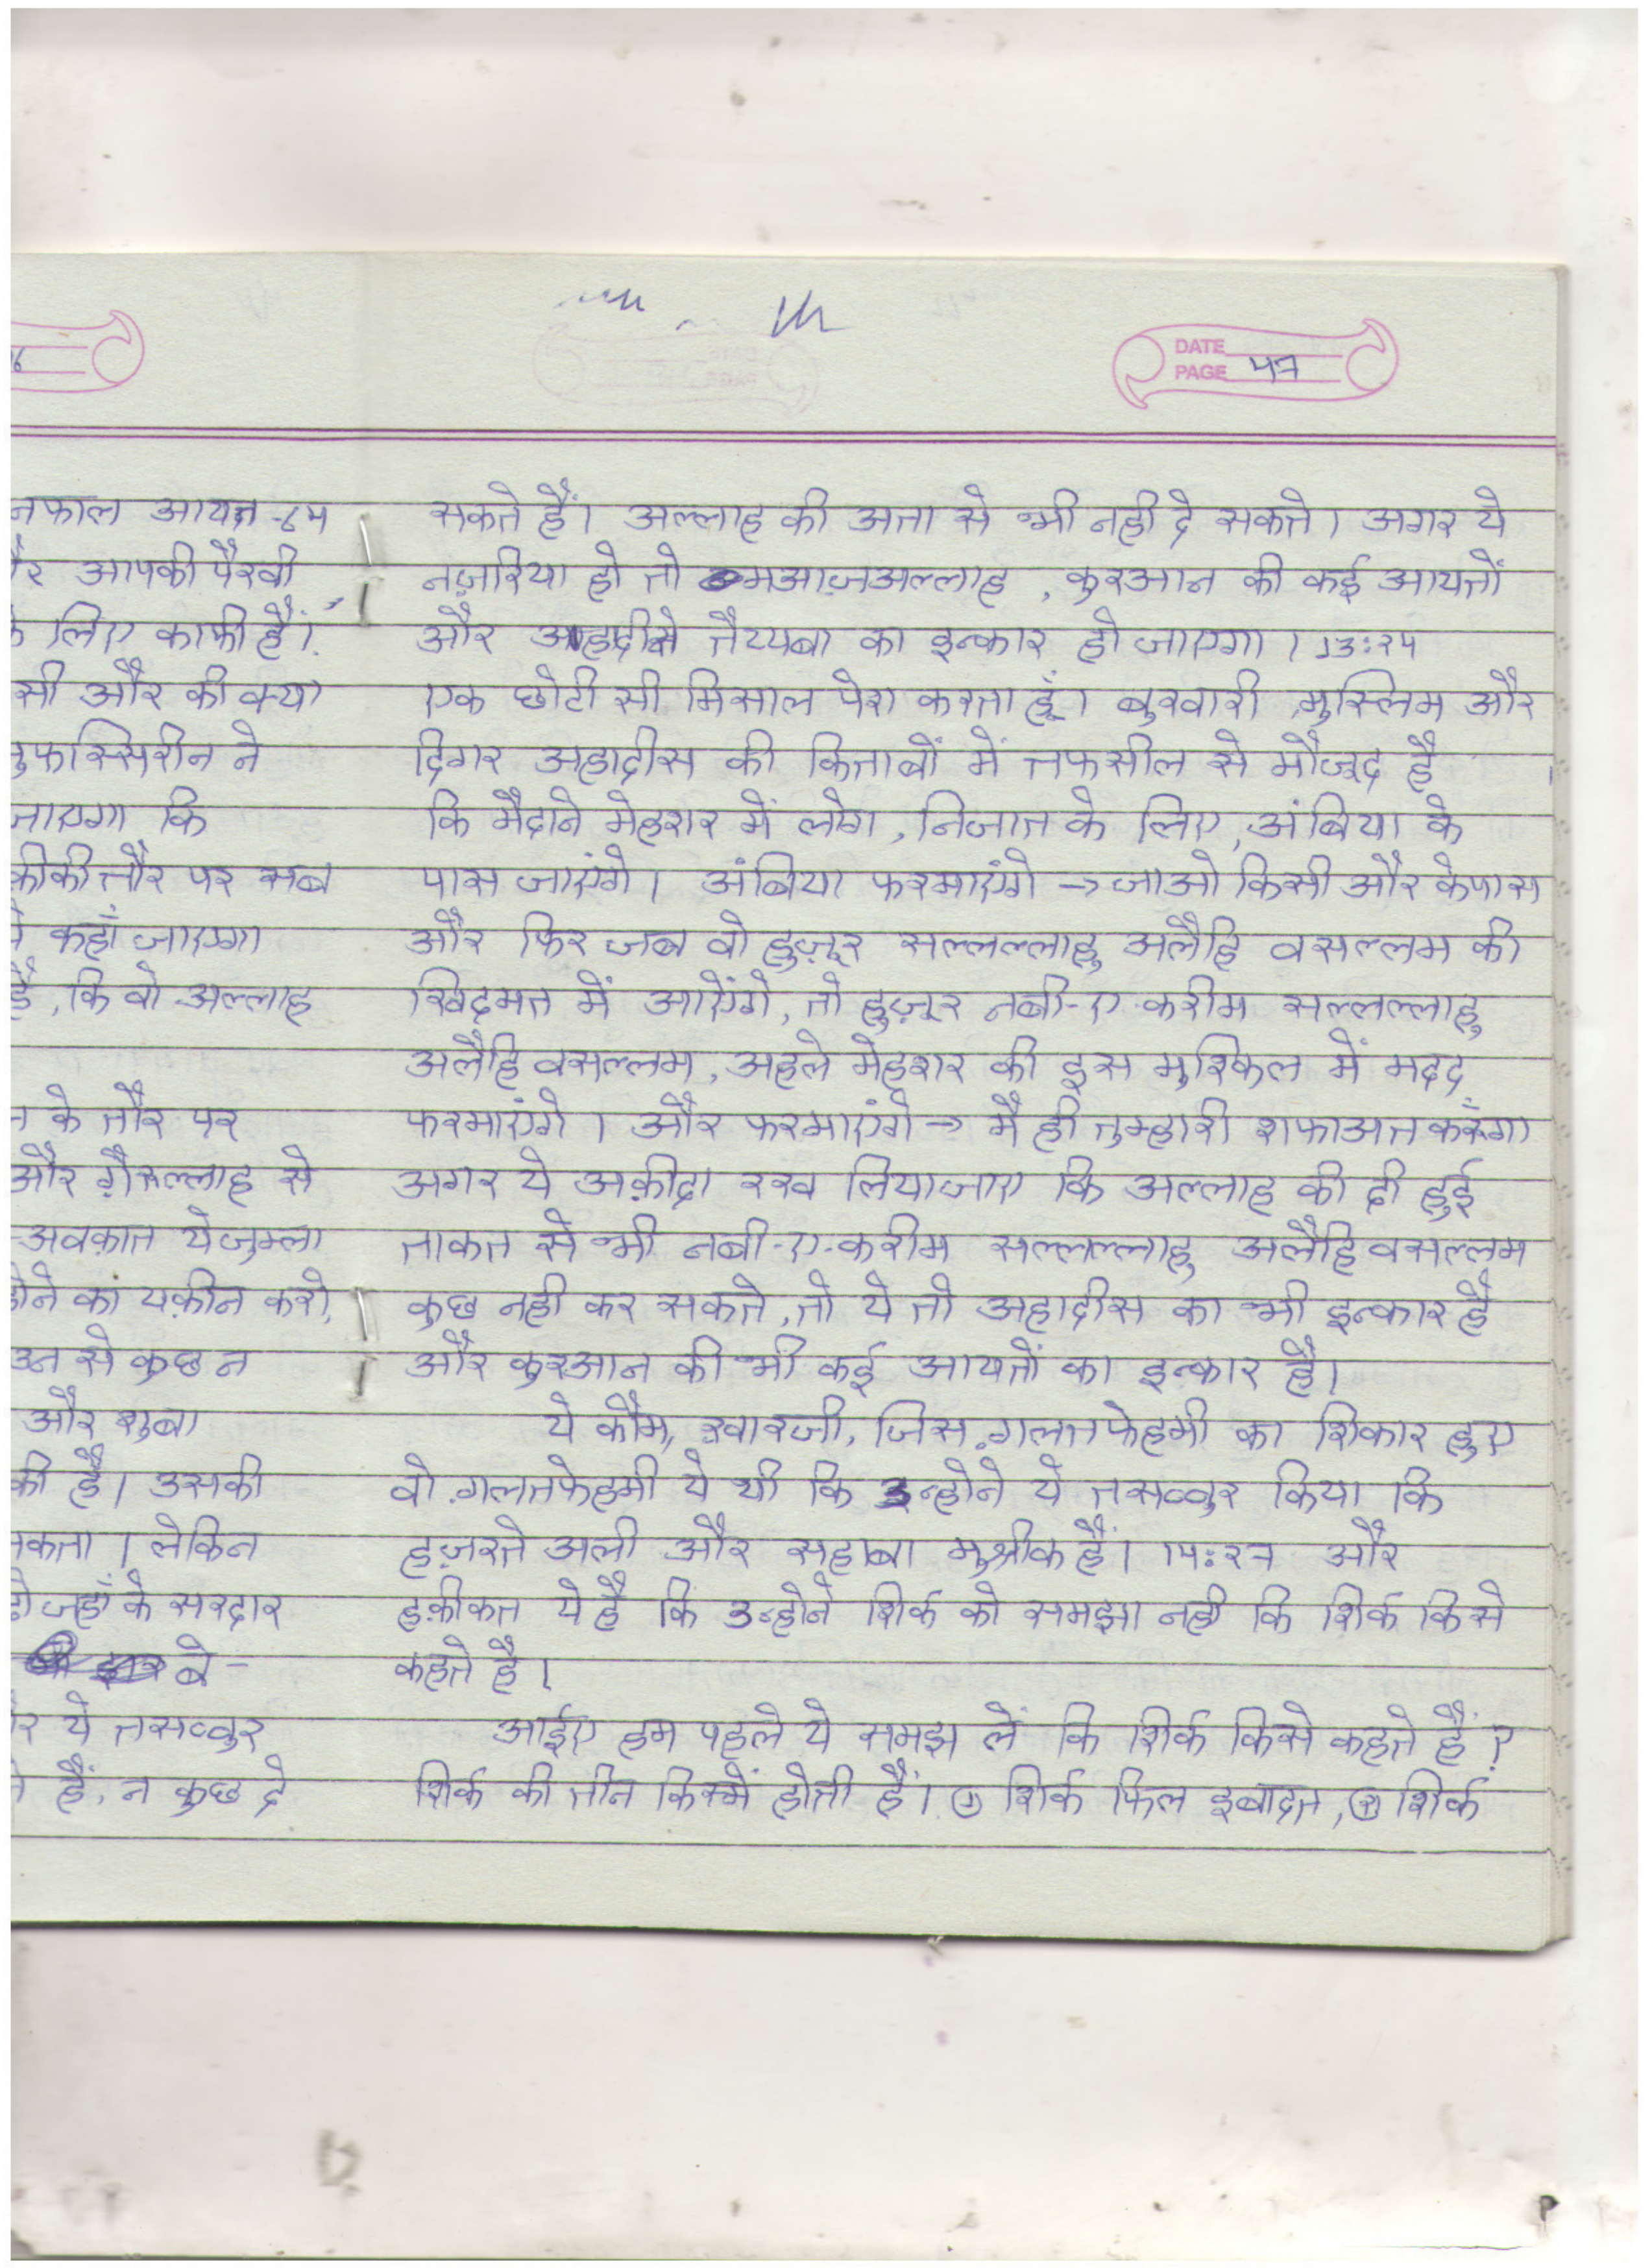 DATE
PAGE 47
नफाल आयत-64
आपकी पैरवी
लिए काफी हैं।
सी और की क्या
मुफस्सिरीन ने
जाएगा कि
क़ीकी तौर पर सब
कहाँ जाएगा
है, कि वो अल्लाह
के तौर पर
और ग़ैरुल्लाह से
अवक़ात ये जुम्ला
होने का यक़ीन करो,
उन से कुछ न
और शुबा
की है। उसकी
सकता। लेकिन
दो जहाँ के सरदार
बे-
ये तसव्वुर
हैं, न कुछ दे
सकते हैं। अल्लाह की अता से भी नही दे सकते। अगर ये
नज़रिया हो तो मआज़अल्लाह, कुरआन की कई आयतों
और अहादीसे तैय्यबा का इन्कार हो जाएगा। 13:24
एक छोटी सी मिसाल पेश करता हूँ। बुखारी, मुस्लिम और
दिगर अहादीस की किताबों में तफसील से मौजूद है
कि मैदाने मेहशर में लोग, निजात के लिए, अंबिया के
पास जाएंगे। अंबिया फरमाएंगे → जाओ किसी और के पास
और फिर जब वो हुज़ूर सल्लल्लाहु अलैहि वसल्लम की
खिदमत में आएंगे, तो हुज़ूर नबी-ए-करीम सल्लल्लाहु
अलैहि वसल्लम, अहले मेहशर की इस मुश्किल में मदद
फरमाएंगे। और फरमाएंगे → मै ही तुम्हारी शफाअत करुँगा
अगर ये अक़ीदा रख लिया जाए कि अल्लाह की दी हुई
ताकत से भी नबी-ए-करीम सल्लल्लाहु अलैहि वसल्लम
कुछ नही कर सकते, तो ये तो अहादीस का भी इन्कार है
और कुरआन की भी कई आयतों का इन्कार है।
ये कौम, खारजी, जिस ग़लतफेहमी का शिकार हुए
वो ग़लतफेहमी ये थी कि उन्होने ये तसव्वुर किया कि
हज़रते अली और सहाबा मुश्रीक हैं। 14:27 और
हक़ीकत ये है कि उन्होने शिर्क को समझा नही कि शिर्क किसे
कहते है।
आईए हम पहले ये समझ लें कि शिर्क किसे कहते हैं?
शिर्क की तीन किस्में होती हैं। ① शिर्क फिल इबादत, ② शिर्क